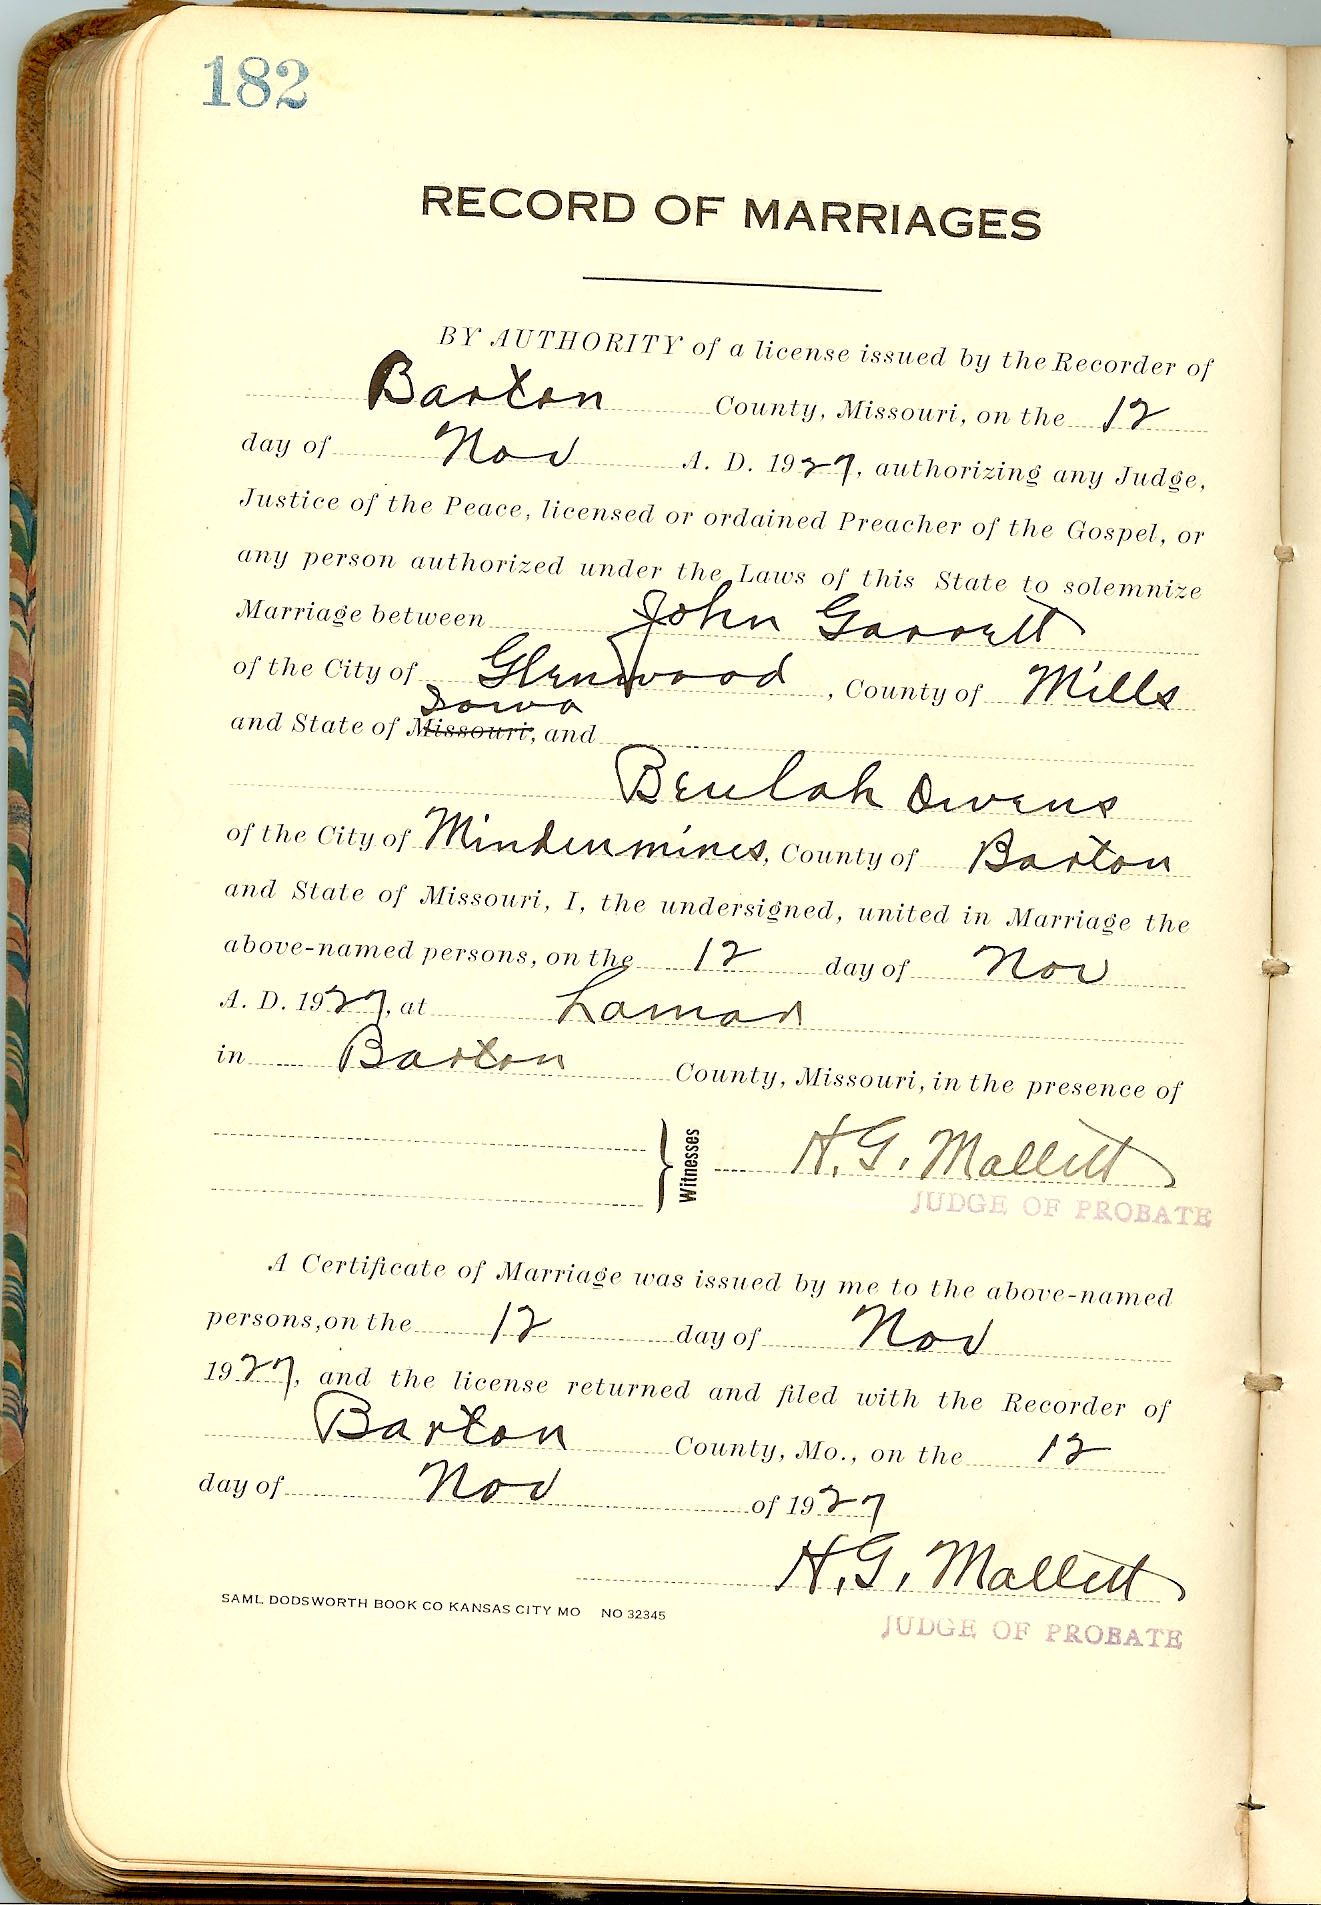 182
RECORD OF MARRIAGES
BY AUTHORITY of a license issued by the Recorder of
Barton County, Missouri, on the 12
day of Nov A. D. 1927, authorizing any Judge,
Justice of the Peace, licensed or ordained Preacher of the Gospel, or
any person authorized under the Laws of this State to solemnize
Marriage between John Garrett
of the City of Glenwood, County of Mills
Iowa
and State of Missouri, and
Beulah Owens
of the City of Mindenmines, County of Barton
and State of Missouri, I, the undersigned, united in Marriage the
above-named persons, on the 12 day of Nov
A. D. 1927, at Lamar
in Barton County, Missouri, in the presence of
Witnesses H. G. Mallett
JUDGE OF PROBATE
A Certificate of Marriage was issued by me to the above-named
persons, on the 12 day of Nov
1927, and the license returned and filed with the Recorder of
Barton County, Mo., on the 12
day of Nov of 1927
H. G. Mallett
SAML DODSWORTH BOOK CO KANSAS CITY MO NO 32345
JUDGE OF PROBATE